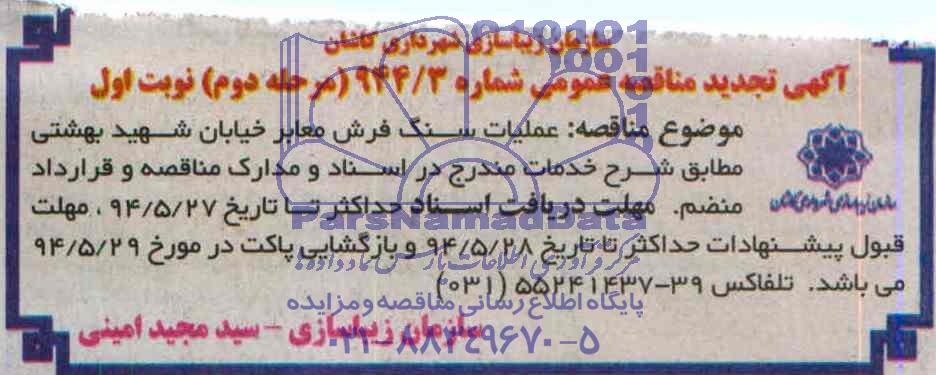 سازمان زیباسازی شهرداری کاشان
آگهی تجدید مناقصه عمومی شماره ۹۴۴/۳ (مرحله دوم) نوبت اول
موضوع مناقصه: عملیات سنگ فرش معابر خیابان شهید بهشتی
مطابق شرح خدمات مندرج در اسناد و مدارک مناقصه و قرارداد
منضم. مهلت دریافت اسناد حداکثر تا تاریخ ۹۴/۵/۲۷ ، مهلت
قبول پیشنهادات حداکثر تا تاریخ ۹۴/۵/۲۸ و بازگشایی پاکت در مورخ ۹۴/۵/۲۹
می باشد. تلفاکس ۳۹-۵۵۲۴۱۴۳۷ (۰۳۱)
سازمان زیباسازی – سید مجید امینی
سازمان زیباسازی شهرداری کاشان
ParsNamadData
پایگاه اطلاع رسانی مناقصه و مزایده
۰۲۱-۸۸۳۴۹۶۷۰-۵